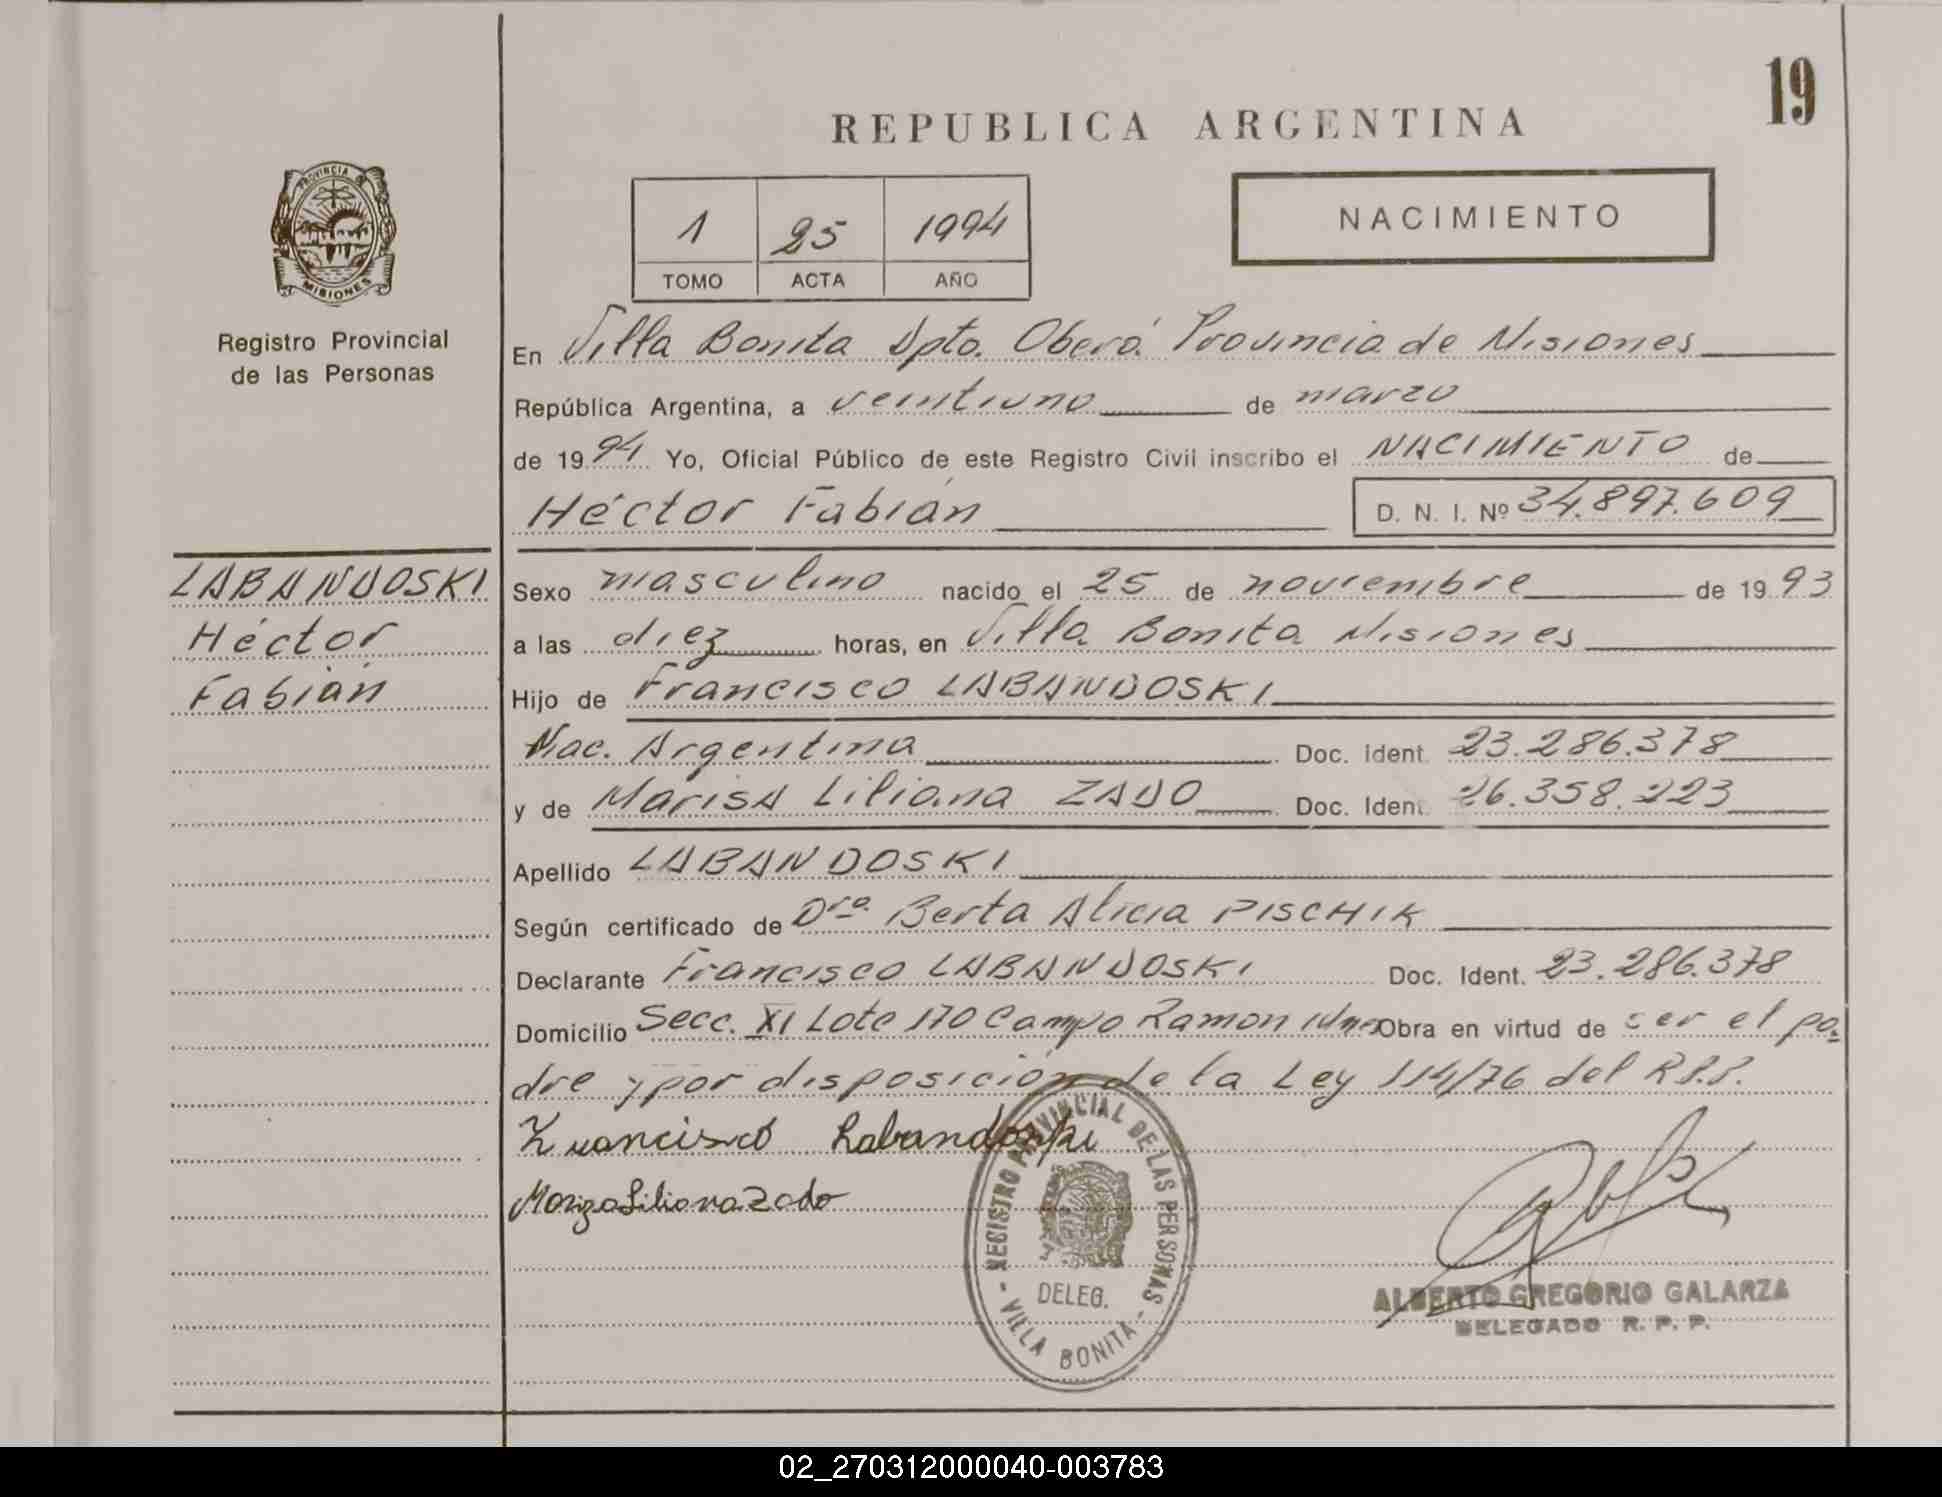 19
REPUBLICA ARGENTINA
PROVINCIA DE
MISIONES
Registro Provincial
de las Personas
1 25 1994
TOMO ACTA AÑO
NACIMIENTO
En Villa Bonita Dpto. Oberá Provincia de Misiones
República Argentina, a veintiuno de marzo
de 1994 Yo, Oficial Público de este Registro Civil inscribo el NACIMIENTO de
Héctor Fabián D. N. I. Nº 34.897.609
LABANDOSKI
Héctor
Fabián
Sexo masculino nacido el 25 de noviembre de 1993
a las diez horas, en Villa Bonita Misiones
Hijo de Francisco LABANDOSKI
Nac. Argentina Doc. Ident. 23.286.378
y de Marisa Liliana ZADO Doc. Ident. 26.358.223
Apellido LABANDOSKI
Según certificado de Dra. Berta Alicia PISCHIK
Declarante Francisco LABANDOSKI Doc. Ident. 23.286.378
Domicilio Secc. XI Lote 170 Campo Ramon Mnes Obra en virtud de ser el pa-
dre y por disposición de la Ley 114/76 del R.P.P.
Francisco Labandoski
Mariza Liliana Zado
REGISTRO PROVINCIAL DE LAS PERSONAS
DELEG.
- VILLA BONITA -
ALBERTO GREGORIO GALARZA
DELEGADO R. P. P.
02_270312000040-003783